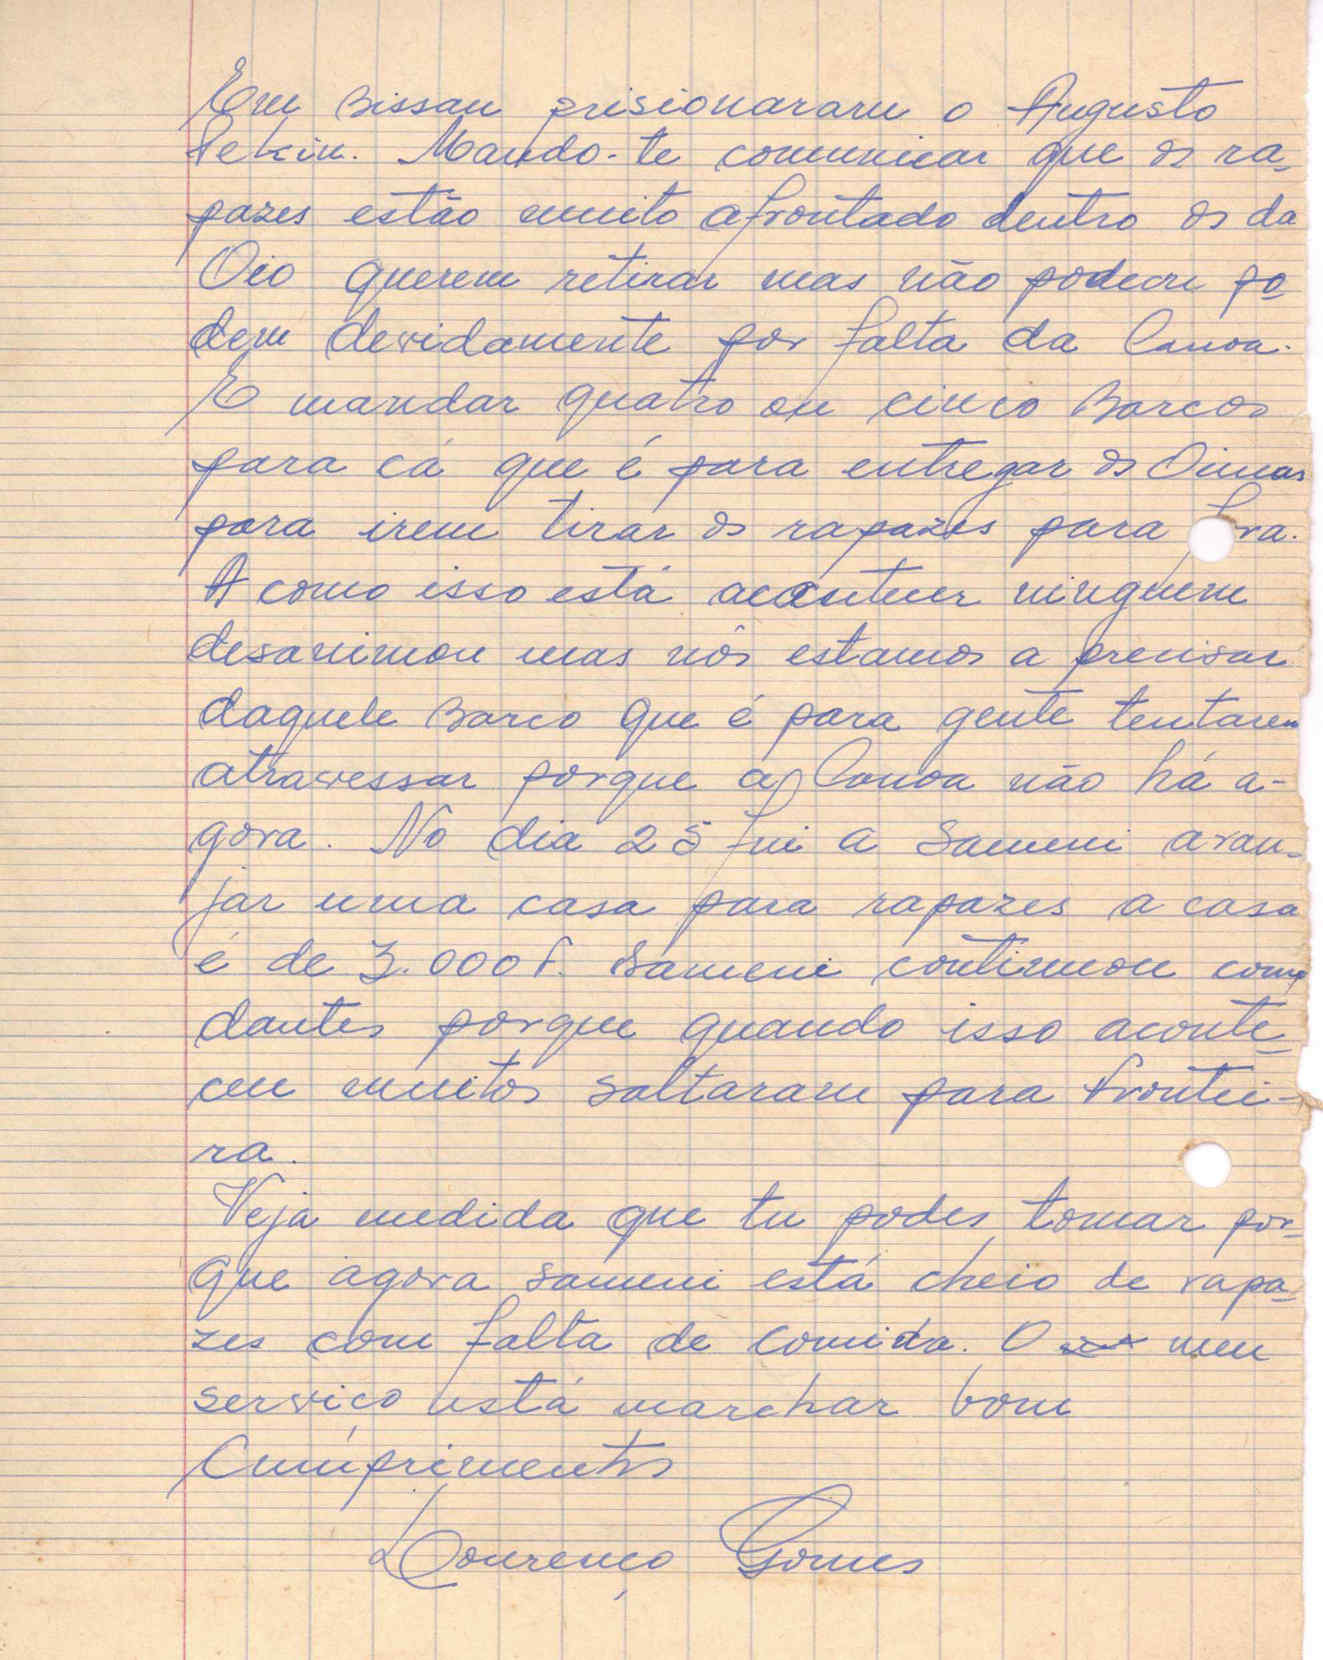 Em Bissau prisionararam o Augusto
Pekin. Mando-te comunicar que os ra-
pazes estão muito afrontado dentro os da
Oio querem retirar mas não podem po
dem devidamente por falta da Canoa.
E mandar quatro ou cinco Barcos
para cá que é para entregar os Oincas
para irem tirar os rapazes para fra.
A como isso está ninguem
desanimou mas nós estamos a precisar
daquele Barco que é para gente tentarem
atravessar porque a Canoa não há a-
gora. No dia 25 fui a Sameni aran-
jar uma casa para rapazes a casa
é de 3.000 f. Sameni continuou como
dantes porque quando isso aconte
ceu muitos saltaram para frontei-
ra.
Veja medida que tu podes tomar por-
que agora Sameni está cheio de rapa-
zes com falta de comida. O meu
serviço está marchar bom
Cumprimentos
Lourenço Gomes